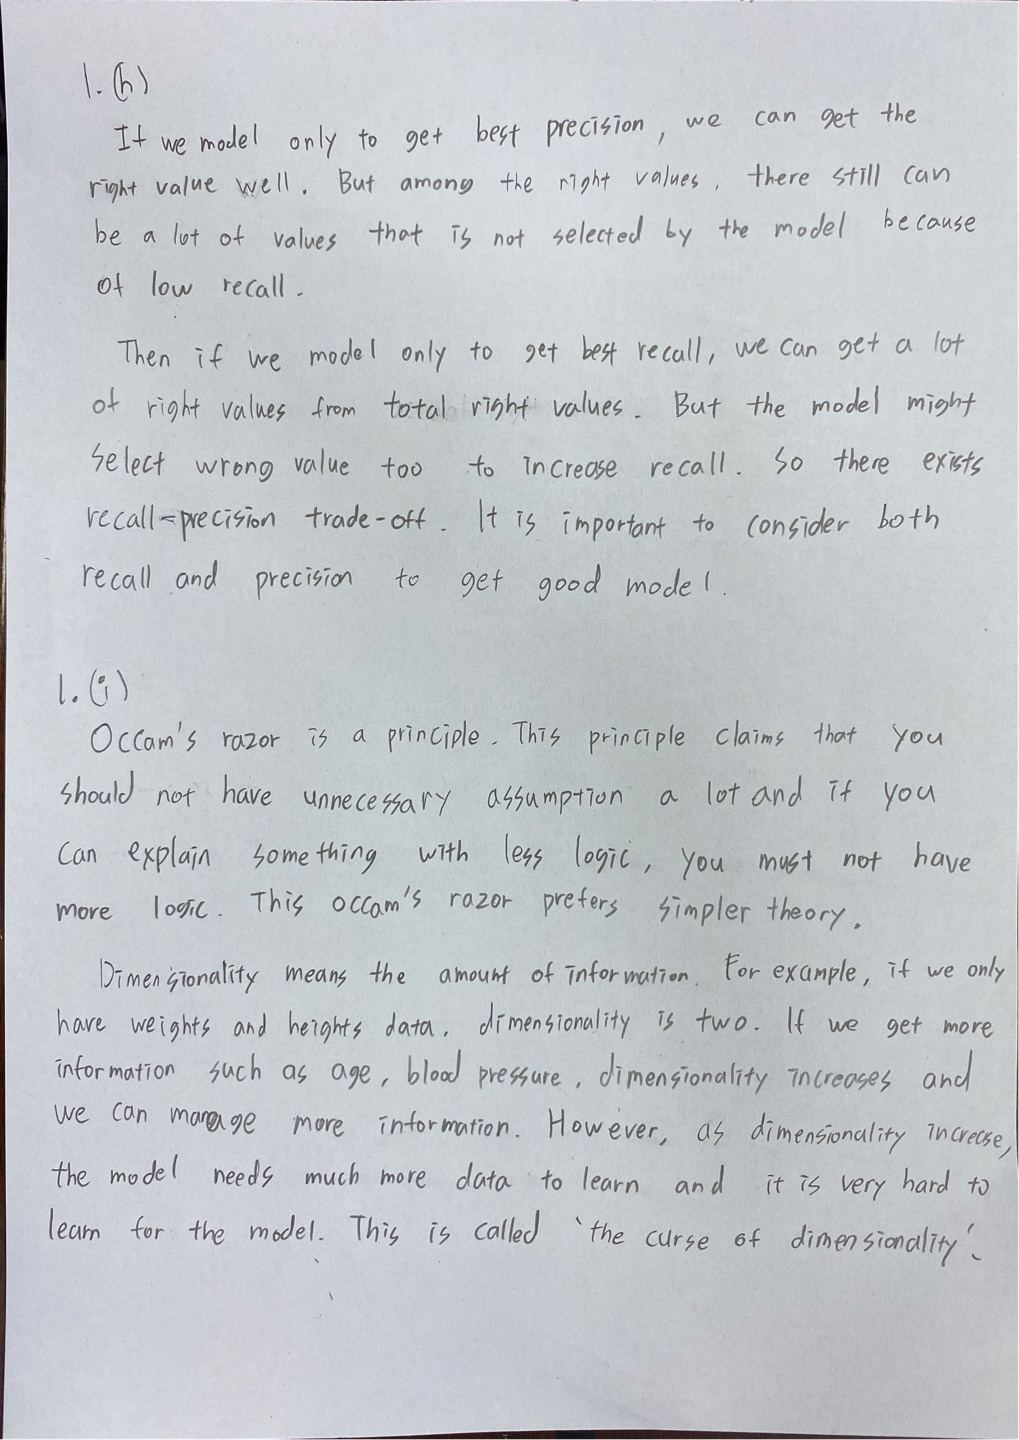 1.(h)
If we model only to get best precision, we can get the
right value well. But among the right values, there still can
be a lot of values that is not selected by the model because
of low recall.
Then if we model only to get best recall, we can get a lot
of right values from total right values. But the model might
select wrong value too to increase recall. So there exists
recall-precision trade-off. It is important to consider both
recall and precision to get good model.
1.(i)
Occam's razor is a principle. This principle claims that you
should not have unnecessary assumption a lot and if you
can explain something with less logic, you must not have
more logic. This occam's razor prefers simpler theory.
Dimensionality means the amount of information. For example, if we only
have weights and heights data, dimensionality is two. If we get more
information such as age, blood pressure, dimensionality increases and
we can manage more information. However, as dimensionality increase,
the model needs much more data to learn and it is very hard to
learn for the model. This is called 'the curse of dimensionality'.